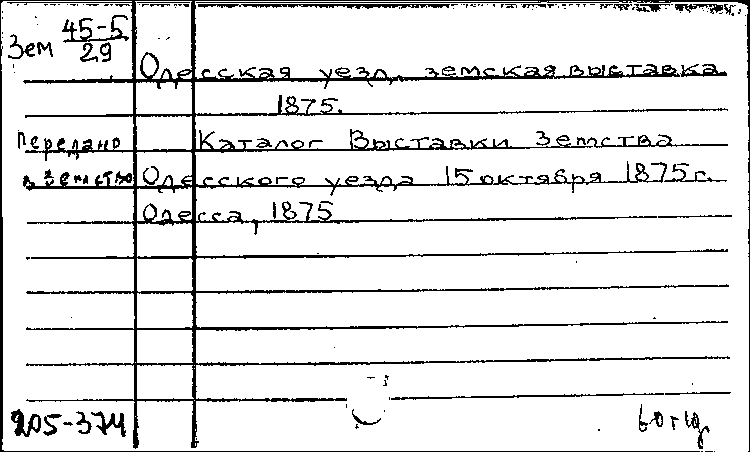 Зем 45-5
29
Одесская уезд. земская выставка
1875.
Передано Каталог Выставки Земства
в Земство Одесского уезда 15 октября 1875 г.
Одесса, 1875
205-374